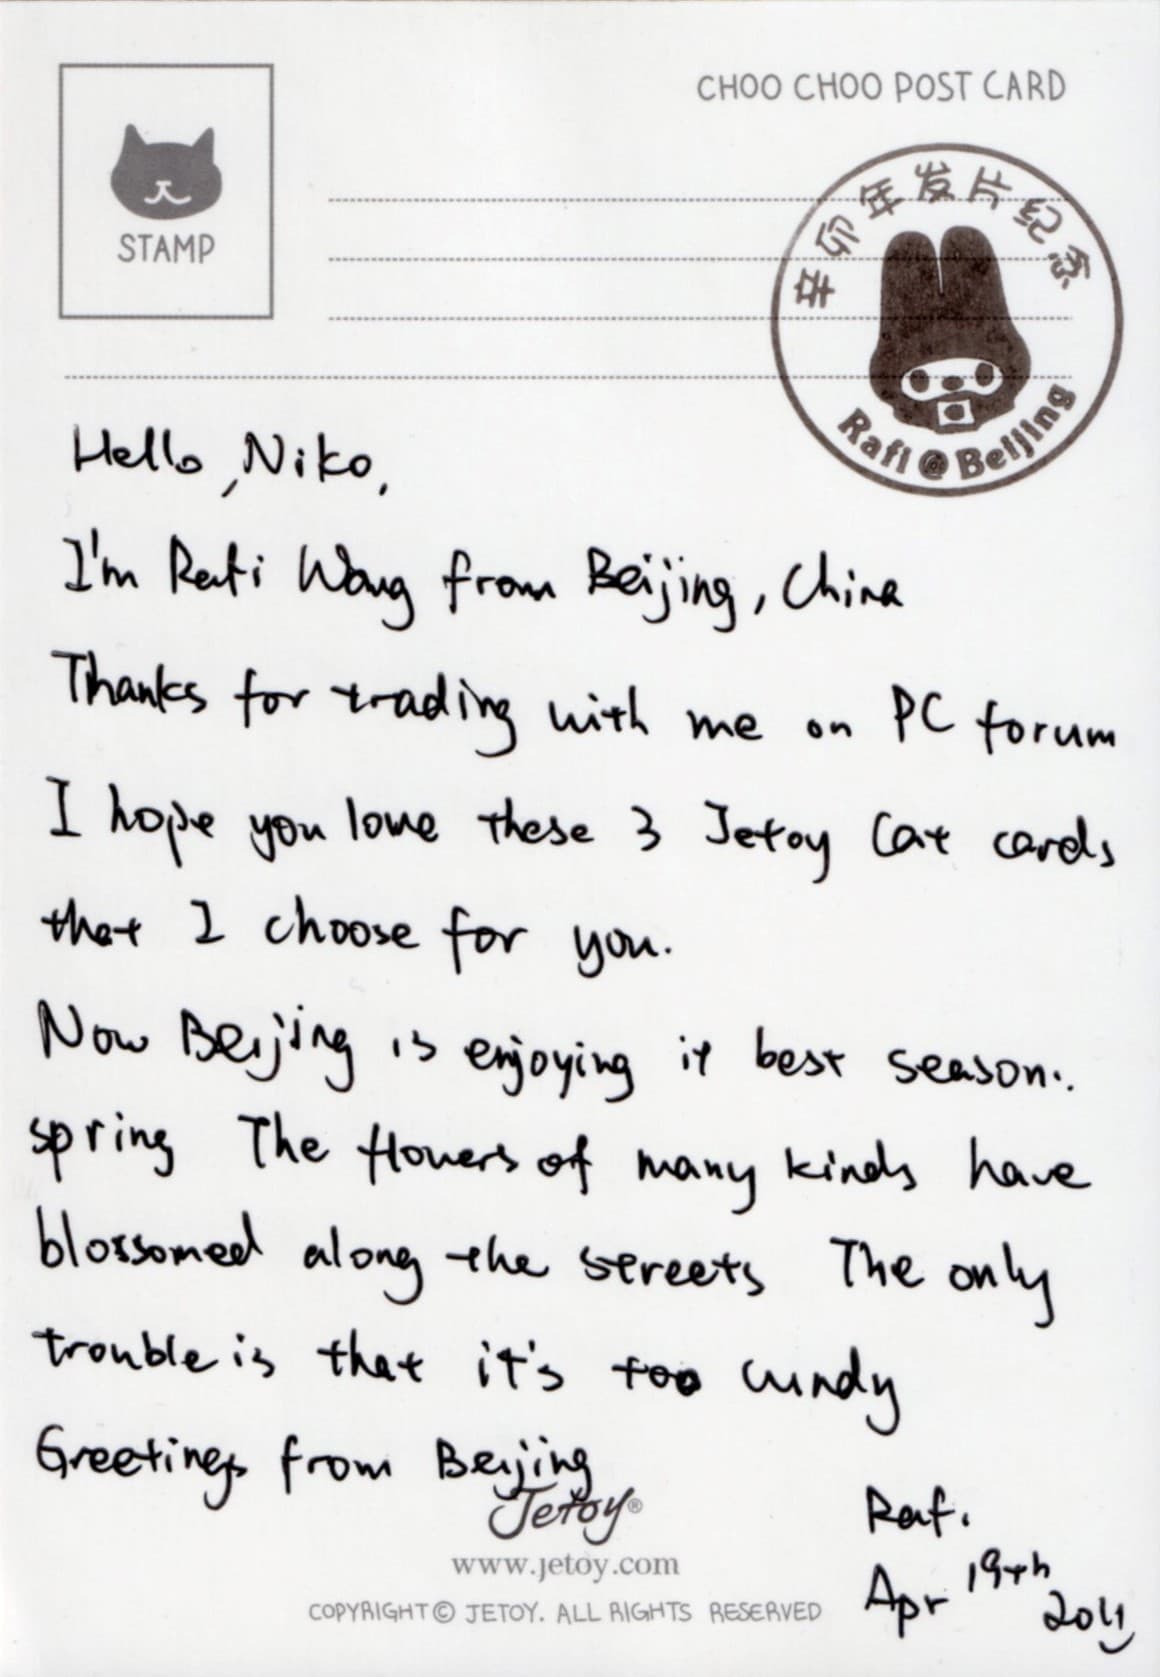 CHOO CHOO POST CARD
STAMP
辛卯年发片纪念
Rafi @ Beijing
Hello, Niko,
I'm Rafi Wang from Beijing, China
Thanks for trading with me on PC forum
I hope you love these 3 Jetoy Cat cards
that I choose for you.
Now Beijing is enjoying it best season..
spring The flowers of many kinds have
blossomed along the streets The only
trouble is that it's too windy
Greetings from Beijing
Rafi
Apr 19th
2011
Jetoy®
www.jetoy.com
COPYRIGHT © JETOY. ALL RIGHTS RESERVED